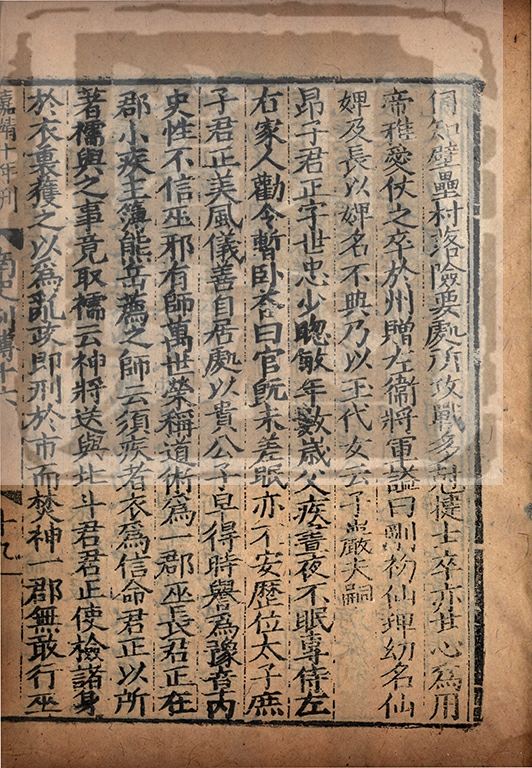 備知壁壘村落險要處所攻戰多剋捷士卒亦甘心為用
帝推愛仗之卒於州贈左衛將軍謚曰剛初仙琕幼名仙
婢及長以婢名不典乃以玉代女云子巖夫嗣
昂子君正字世忠少聦敏年數歲父疾晝夜不眠專侍左
右家人勸令暫卧荅曰官旣未差眠亦不安歷位太子庶
子君正美風儀善自居處以貴公子早得時譽為豫章內
史性不信巫邪有師萬世榮稱道術為一郡巫長君正在
郡小疾主簿熊岳薦之師云須疾者衣為信命君正以所
著襦與之事竟取襦云神將送與北斗君君正使檢諸身
於衣裏獲之以為亂政即刑於市而焚神一郡無敢行巫
嘉靖十年刊
南史列傳十六
十九